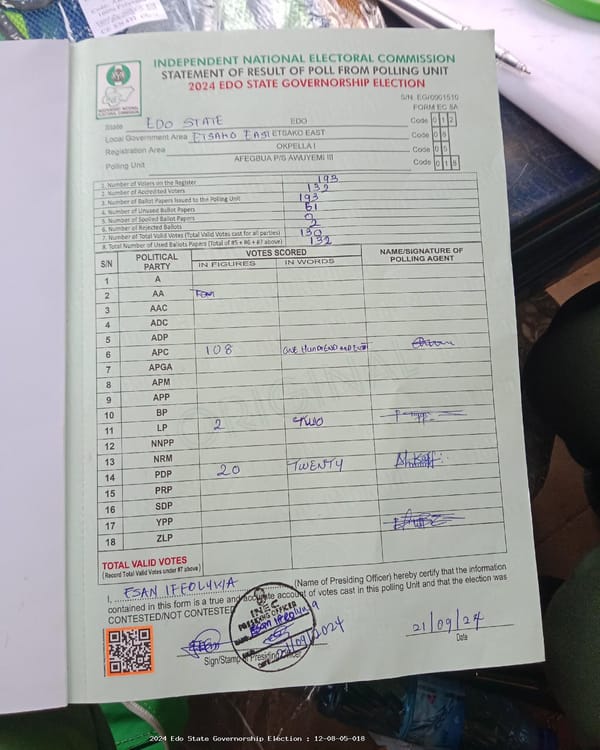 INDEPENDENT NATIONAL ELECTORAL COMMISSION
STATEMENT OF RESULT OF POLL FROM POLLING UNIT
2024 EDO STATE GOVERNORSHIP ELECTION
S/N: EG/0001510
FORM EC 8A
State EDO STATE EDO Code 0 1 2
Local Government Area ETSAKO EAST ETSAKO EAST Code 0 8
Registration Area OKPELLA I Code 0 5
Polling Unit AFEGBUA P/S AWUYEMI III Code 0 1 8
1. Number of Voters on the Register 193
2. Number of Accredited Voters 132
3. Number of Ballot Papers Issued to the Polling Unit 193
4. Number of Unused Ballot Papers 61
5. Number of Spoiled Ballot Papers 0
6. Number of Rejected Ballots 2
7. Number of Total Valid Votes (Total Valid Votes cast for all parties) 130
8. Total Number of Used Ballots Papers (Total of #5 + #6 + #7 above) 132
S/N POLITICAL PARTY VOTES SCORED NAME/SIGNATURE OF POLLING AGENT
IN FIGURES IN WORDS
1 A
2 AA
3 AAC
4 ADC
5 ADP
6 APC 108 ONE HUNDRED AND EIGHT
7 APGA
8 APM
9 APP
10 BP
11 LP 2 TWO
12 NNPP
13 NRM
14 PDP 20 TWENTY
15 PRP
16 SDP
17 YPP
18 ZLP
TOTAL VALID VOTES
(Record Total Valid Votes under #7 above)
I, ESAN IFEOLUWA (Name of Presiding Officer) hereby certify that the information
contained in this form is a true and accurate account of votes cast in this polling Unit and that the election was
CONTESTED/NOT CONTESTED
INEC
PRESIDING OFFICER
21/09/2024
21/09/24
Sign/Stamp of Presiding Officer
Date
ORIGINAL
2024 Edo State Governorship Election : 12-08-05-018